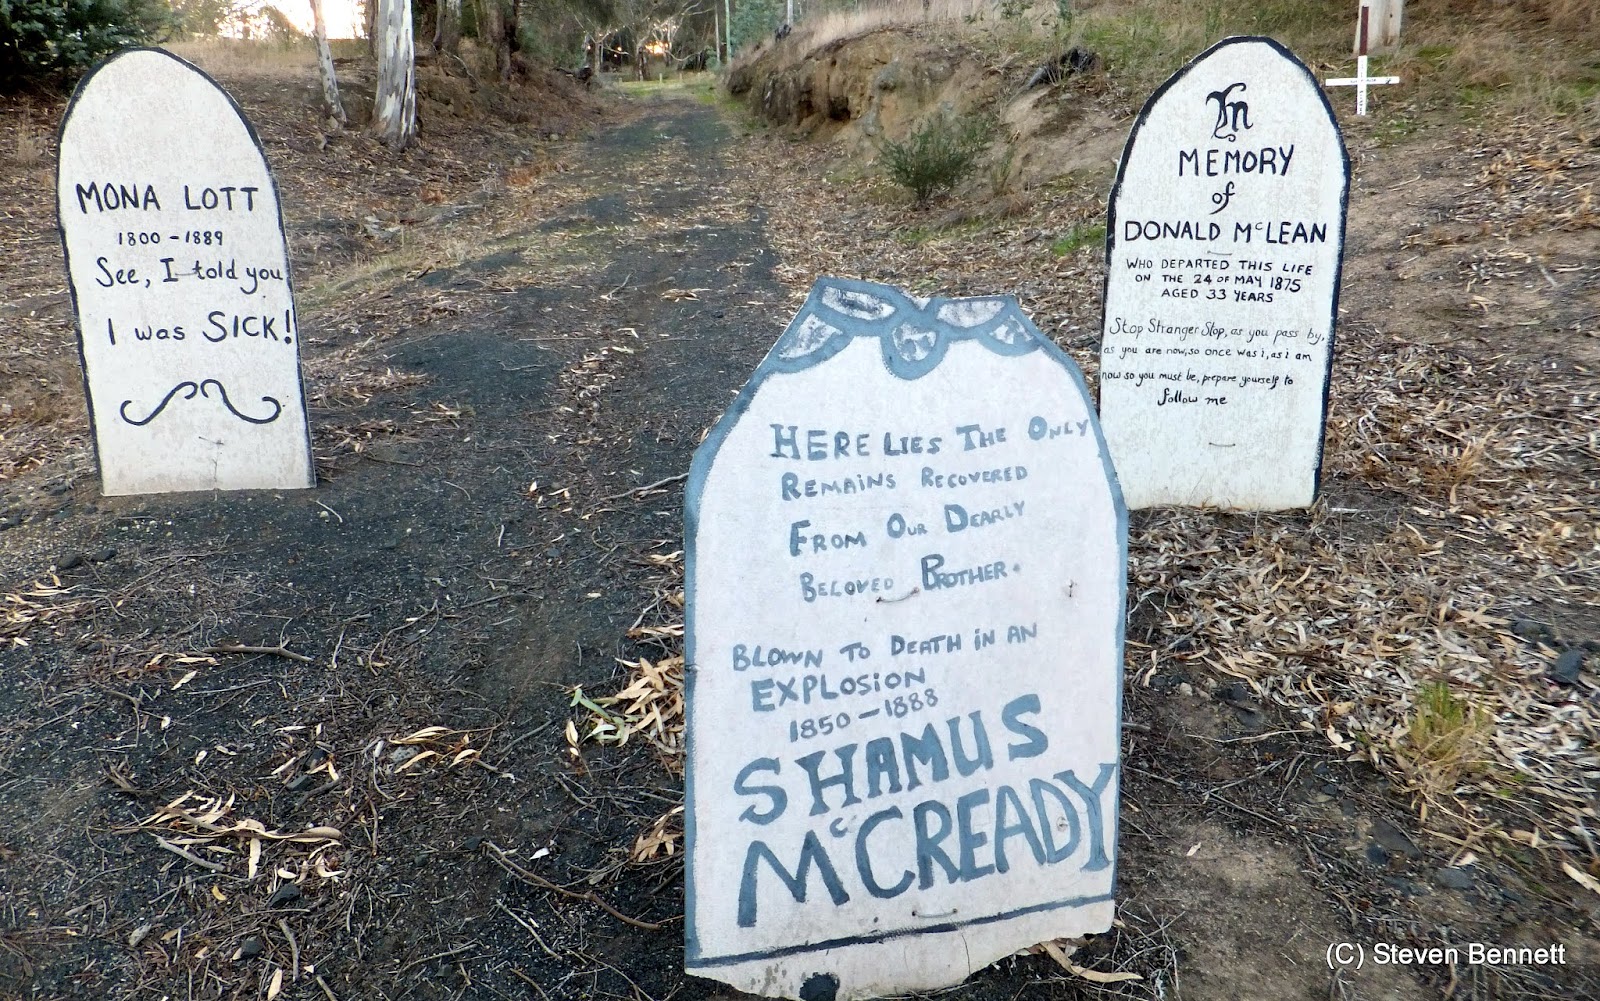 MONA LOTT
1800-1889
See, I told you
I was SICK!
HERE LIES THE ONLY
REMAINS RECOVERED
FROM OUR DEARLY
BELOVED BROTHER.
BLOWN TO DEATH IN AN
EXPLOSION
1850-1888
SHAMUS
McCREADY
In
MEMORY
of
DONALD McLEAN
WHO DEPARTED THIS LIFE
ON THE 24 OF MAY 1875
AGED 33 YEARS
Stop Stranger Stop, as you pass by,
as you are now, so once was i, as i am
now so you must be, prepare yourself to
follow me
(C) Steven Bennett